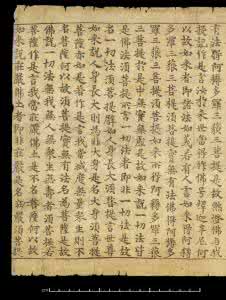 有法得阿耨多羅三藐三菩提是故然燈佛與我
受記作是言汝於來世當得作佛號釋迦牟尼何
以故如來者即諸法如義若有人言如來得阿耨
多羅三藐三菩提須菩提實無有法佛得阿耨多
羅三藐三菩提須菩提如來所得阿耨多羅三藐
三菩提於是中無實無虛是故如來說一切法皆
是佛法須菩提所言一切法者即非一切法是故
名一切法須菩提譬如人身長大須菩提言世尊
如來說人身長大則為非大身是名大身須菩提
菩薩亦如是若作是言我當滅度無量眾生則不
名菩薩何以故須菩提實無有法名為菩薩是故
佛說一切法無我無人無眾生無壽者須菩提若
菩薩作是言我當莊嚴佛土是不名菩薩何以故
如來說莊嚴佛土者即非莊嚴是名莊嚴須菩提